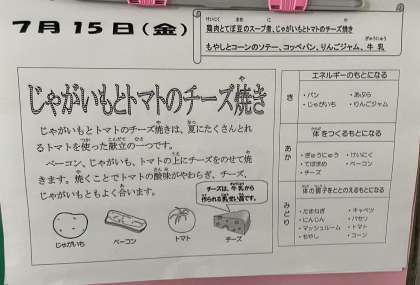 7月15日(金)
鶏肉とてぼ豆のスープ煮、じゃがいもとトマトのチーズ焼き
もやしとコーンのソテー、コッペパン、りんごジャム、牛乳
じゃがいもとトマトのチーズ焼き
じゃがいもとトマトのチーズ焼きは、夏にたくさんとれ
るトマトを使った献立の一つです。
ベーコン、じゃがいも、トマトの上にチーズをのせて焼
きます。焼くことでトマトの酸味がやわらぎ、チーズ、
じゃがいもともよく合います。
チーズは、牛乳から
作られる乳せい品です。
じゃがいも
ベーコン
トマト
チーズ
き
エネルギーのもとになる
・パン ・あぶら
・じゃがいも ・りんごジャム
あか
体をつくるもとになる
・ぎゅうにゅう ・けいにく
・てぼまめ ・ベーコン
・チーズ
みどり
体の調子をととのえるもとになる
・たまねぎ ・キャベツ
・にんじん ・パセリ
・マッシュルーム ・トマト
・もやし ・コーン